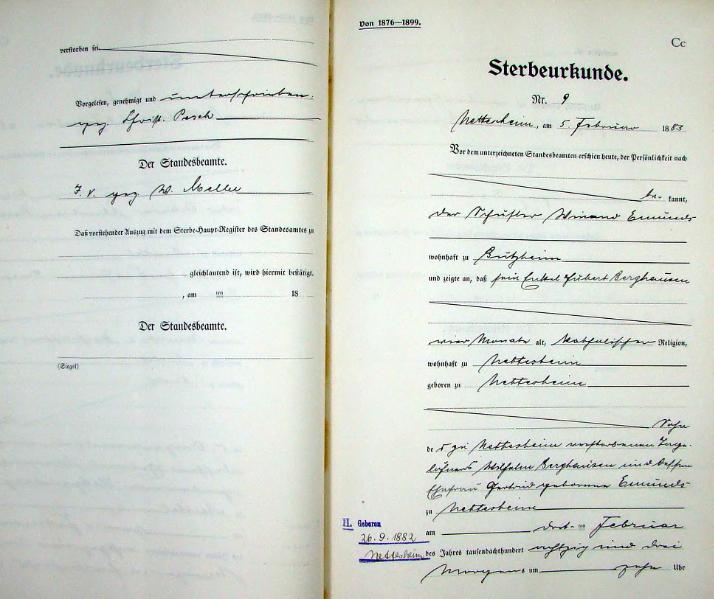 verstorben sei
Vorgelesen, genehmigt und unterschrieben.
gez. Christ. Pesch
Der Standesbeamte.
J. V. gez. W. Moeller
Daß vorstehender Auszug mit dem Sterbe-Haupt-Register des Standesamtes zu
gleichlautend ist, wird hiermit bestätigt.
, am ten 18
Der Standesbeamte.
(Siegel)
Von 1876—1899.
Cc
Sterbeurkunde.
Nr. 9
Nettersheim, am 5. Februar 1883
Vor dem unterzeichneten Standesbeamten erschien heute, der Persönlichkeit nach
be- kannt,
der Winand Emunds
wohnhaft zu
und zeigte an, daß sein Enkel Hubert Berghausen
vier Monate alt, katholischer Religion,
wohnhaft zu Nettersheim
geboren zu Nettersheim
Sohn
des zu Nettersheim verstorbenen Tage-
löhners Wilhelm Berghausen und dessen
Ehefrau Gertrud geborene Emunds
zu Nettersheim
am ten Februar
des Jahres tausendachthundert achtzig und drei
Morgens um zehn Uhr
II. Geboren
26. 9. 1882
Nettersheim